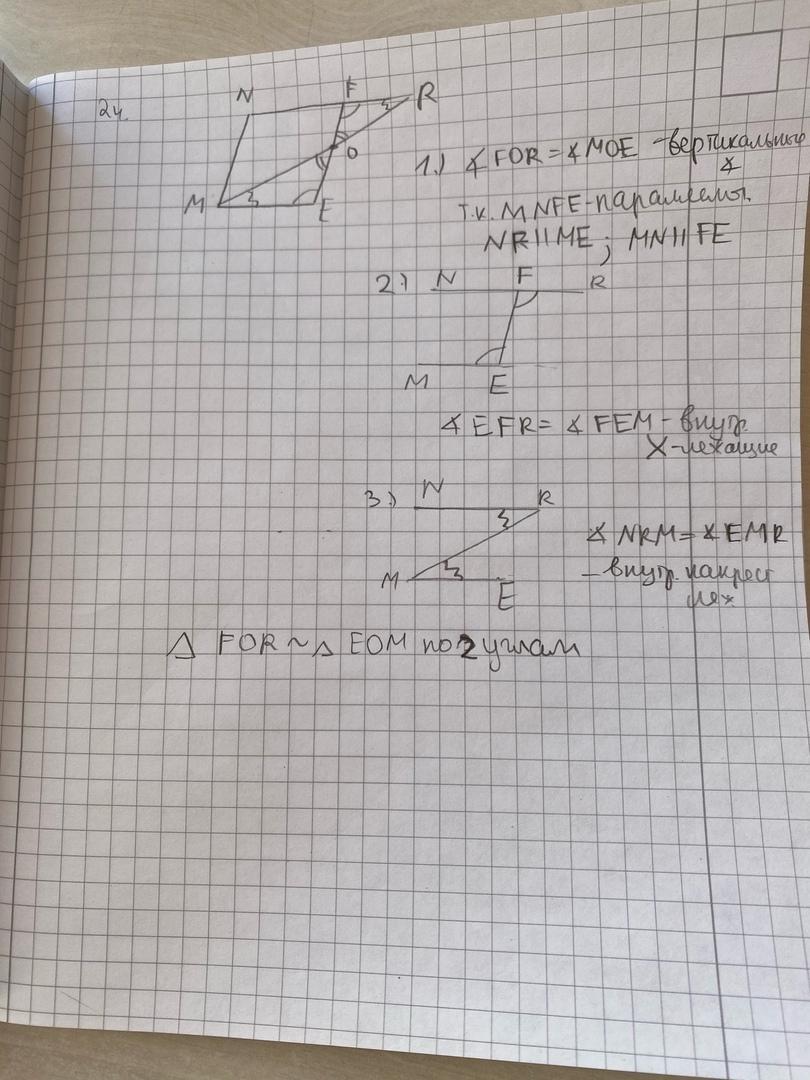 24.
N F R
O
M E
1.) ∡ FOR = ∡ MOE - вертикальные
∡
т.к. MNFE - параллелогр.
NR || ME ; MN || FE
2.) N F R
M E
∡ EFR = ∡ FEM - внутр.
X-лежащие
3.) N R
∡ NRM = ∡ EMR
M E
- внутр. накрест
леж
△ FOR ~ △ EOM по 2 углам